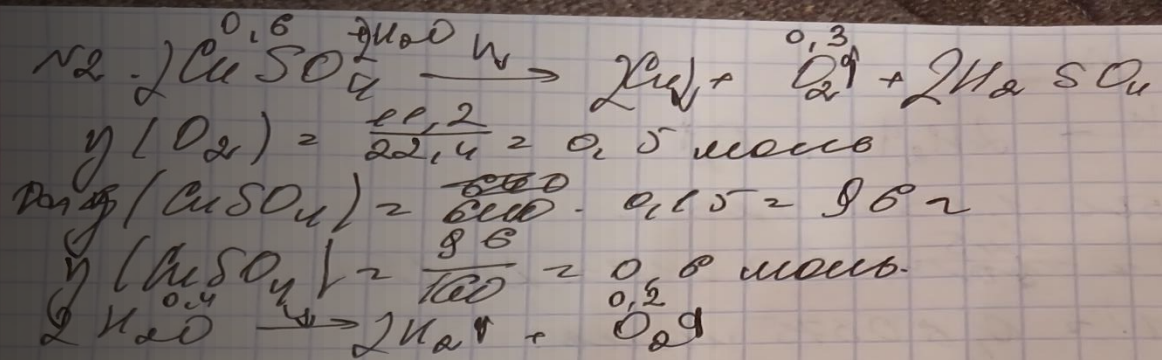 0,6 0,3
N2. 2CuSO4 + 2H2O → 2Cu↓ + O2↑ + 2H2SO4
η(O2) = 11,2/22,4 = 0,5 моль
m(CuSO4) = 640 · 0,15 = 96 г
η(CuSO4) = 96/160 = 0,6 моль.
0,4 0,2
2H2O → 2H2↑ + O2↑